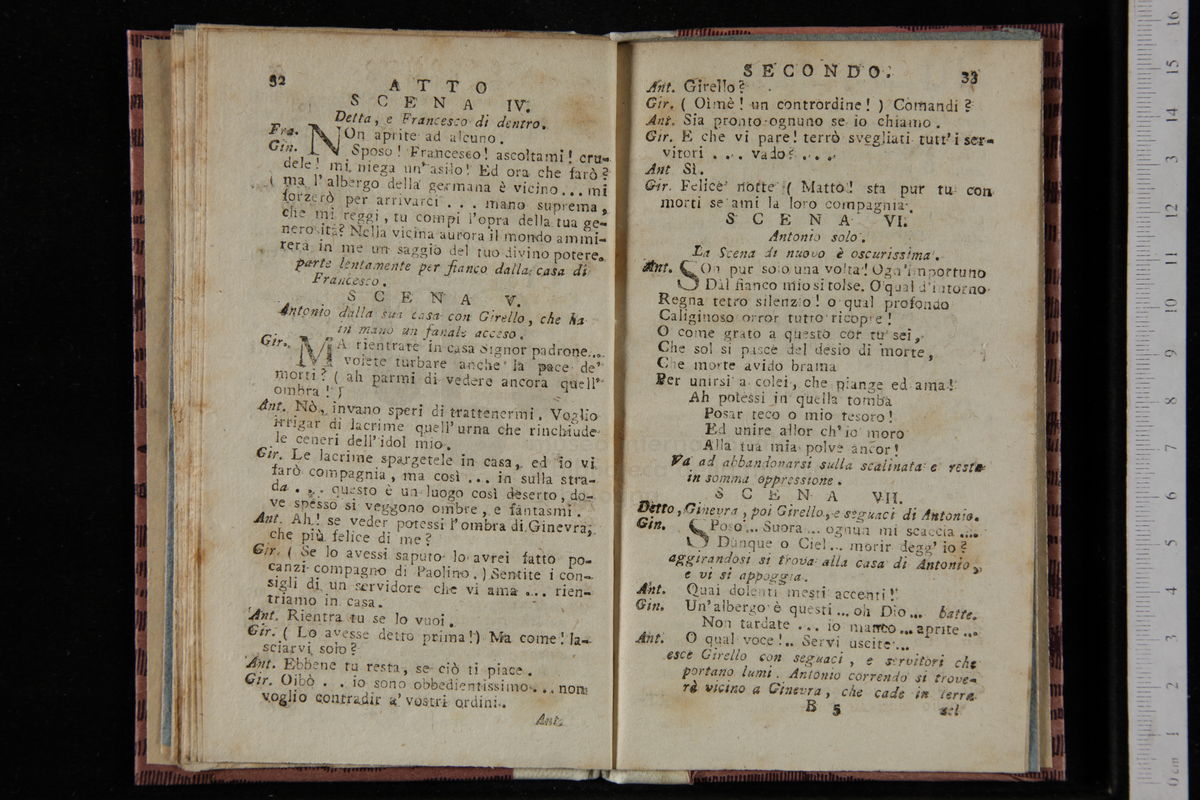 32
ATTO
SCENA IV.
Detta, e Francesco di dentro.
Fra. NOn aprite ad alcuno.
Gin. Sposo! Francesco! ascoltami! cru-
dele! mi niega un' asilo! Ed ora che farò?
( ma l' albergo della germana è vicino... mi
forzerò per arrivarci . . . mano suprema,
che mi reggi, tu compi l'opra della tua ge-
nerosità? Nella vicina aurora il mondo ammi-
rerà in me un saggio del tuo divino potere.
parte lentamente per fianco dalla casa di
Francesco.
SCENA V.
Antonio dalla sua casa con Girello, che ha
in mano un fanale acceso.
Gir. MA rientrate in casa Signor padrone...
volete turbare anche la pace de'
morti? ( ah parmi di vedere ancora quell'
ombra! )
Ant. Nò, invano speri di trattenermi. Voglio
irrigar di lacrime quell'urna che rinchiude
le ceneri dell'idol mio.
Gir. Le lacrime spargetele in casa, ed io vi
farò compagnia, ma così ... in sulla stra-
da . . . questo è un luogo così deserto, do-
ve spesso si veggono ombre, e fantasmi.
Ant. Ah! se veder potessi l'ombra di Ginevra,
che più felice di me?
Gir. ( Se lo avessi saputo lo avrei fatto po-
canzi compagno di Paolino. ) Sentite i con-
sigli di un servidore che vi ama ... rien-
triamo in casa.
Ant. Rientra tu se lo vuoi.
Gir. ( Lo avesse detto prima!) Ma come! la-
sciarvi solo?
Ant. Ebbene tu resta, se ciò ti piace.
Gir. Oibò . . io sono obbedientissimo ... non
voglio contradir a' vostri ordini.
Ant.
SECONDO.
33
Ant. Girello?
Gir. ( Oimè! un contrordine! ) Comandi?
Ant. Sia pronto ognuno se io chiamo.
Gir. E che vi pare! terrò svegliati tutt' i ser-
vitori . . . vado? . . .
Ant Sì.
Gir. Felice notte ( Matto! sta pur tu con
morti se ami la loro compagnia.
SCENA VI.
Antonio solo.
La Scena di nuovo è oscurissima.
Ant. SOn pur solo una volta! Ogn'importuno
Dal fianco mio si tolse. O qual d'intorno
Regna tetro silenzio! o qual profondo
Caliginoso orror tutto ricopre!
O come grato a questo cor tu sei,
Che sol si pasce del desio di morte,
Che morte avido brama
Per unirsi a colei, che piange ed ama!
Ah potessi in quella tomba
Posar teco o mio tesoro!
Ed unire allor ch'io moro
Alla tua mia polve ancor!
Va ad abbandonarsi sulla scalinata e resta
in somma oppressione.
SCENA VII.
Detto, Ginevra, poi Girello, e seguaci di Antonio.
Gin. SPoso... Suora ... ognun mi scaccia ....
Dunque o Ciel... morir degg' io?
aggirandosi si trova alla casa di Antonio,
e vi si appoggia.
Ant. Quai dolenti mesti accenti!
Gin. Un'albergo è questi ... oh Dio... batte.
Non tardate ... io manco ... aprite ...
Ant. O qual voce!.. Servi uscite...
esce Girello con seguaci, e servitori che
portano lumi. Antonio correndo si trove-
rà vicino a Ginevra, che cade in terra
B 5
nel